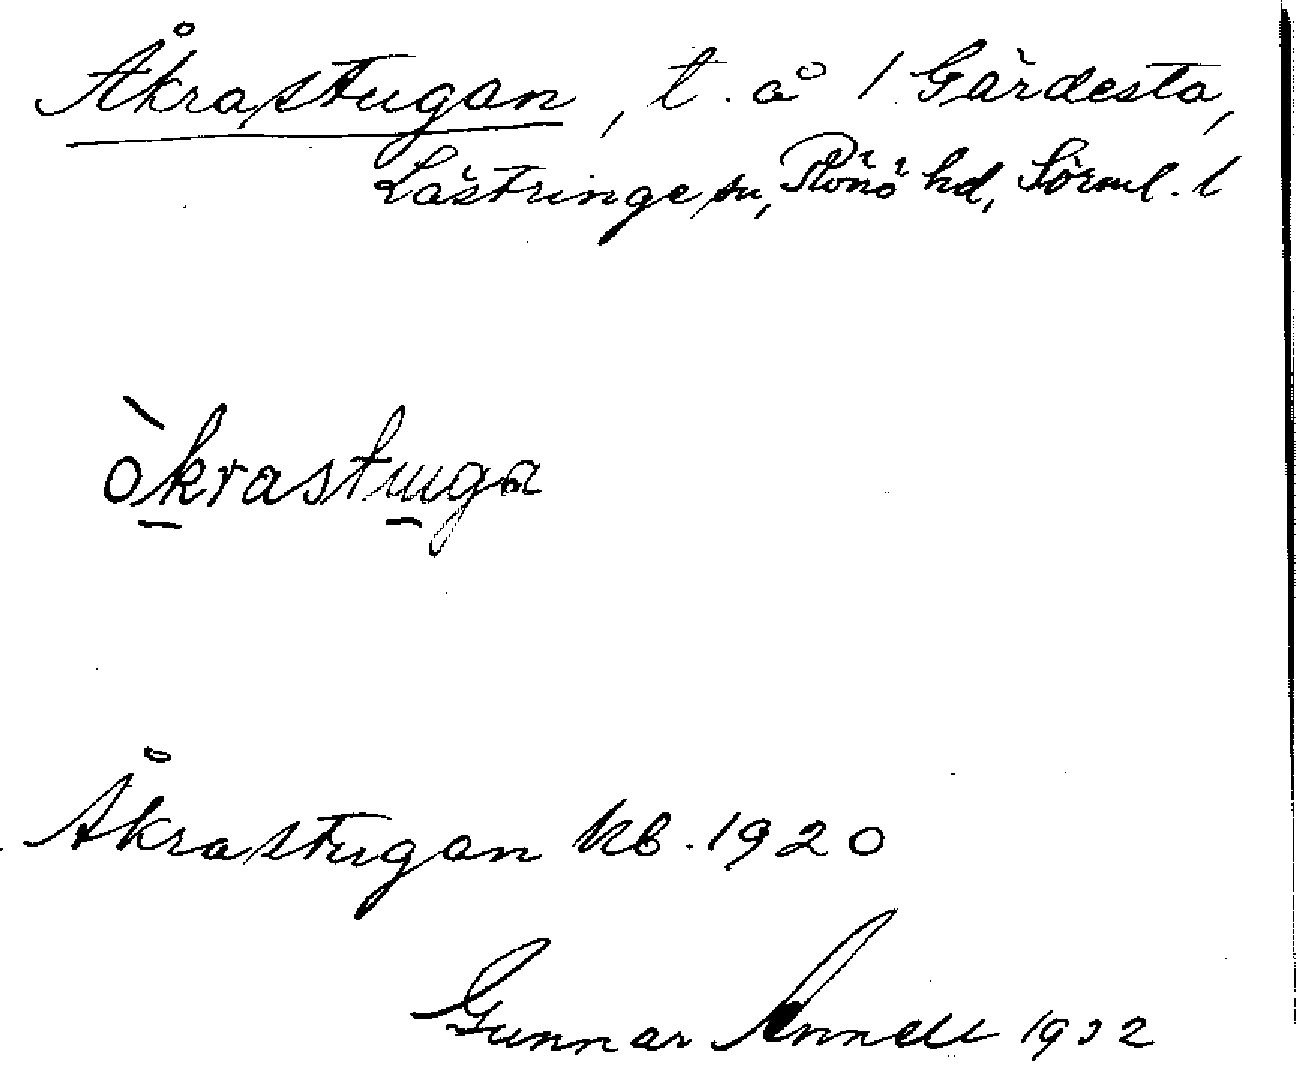 Åkrastugan, t. å 1 Gärdesta,
Lästringe sn, Rönö hd, Sörml. l
òkrastuga
Åkrastugan kb. 1920
Gunnar Annell 1932